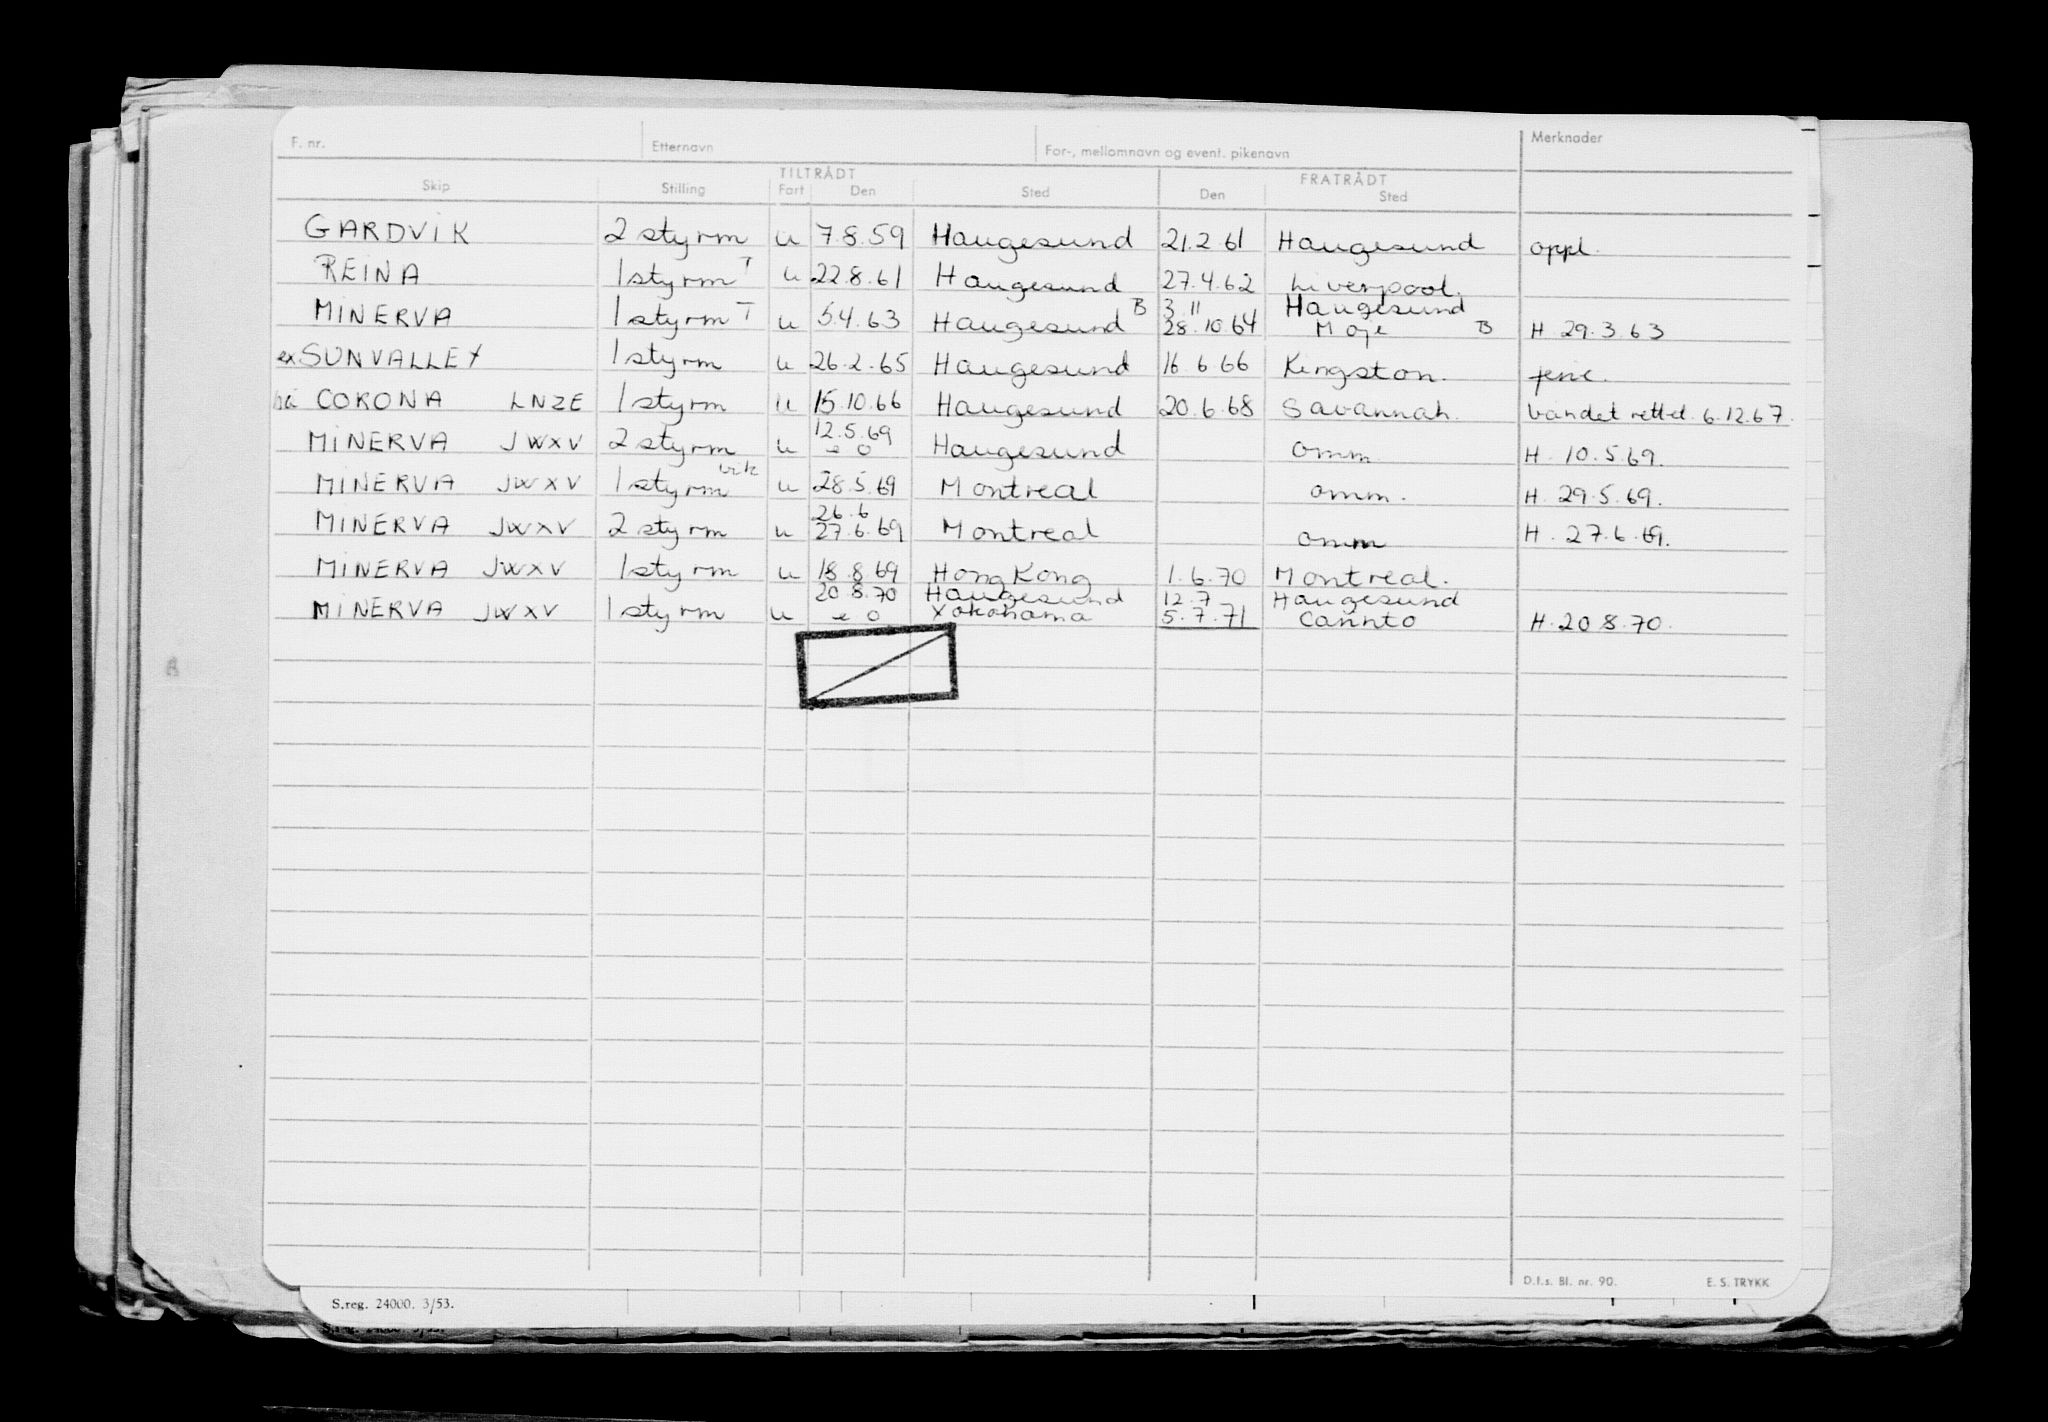 F. nr. Etternavn For-, mellomnavn og event. pikenavn Merknader
TILTRÅDT FRATRÅDT
Skip Stilling Fart Den Sted Den Sted
GARDVIK 2 styrm u 7.8.59 Haugesund 21.2 61 Haugesund oppl.
REINA 1 styrm T u 22.8.61 Haugesund 27.4.62 Liverpool.
B 3 11 Haugesund
MINERVA 1 styrm T u 5.4.63 Haugesund 28.10.64 Moje B H 29.3.63
ex SUNVALLEY 1 styrm u 26.2.65 Haugesund 16 6 66 Kingston. ferie.
nå CORONA LNZE 1 styrm u 15.10.66 Haugesund 20.6.68 Savannah. bandet rettet. 6.12.67.
12.5.69
MINERVA JWXV 2 styrm u e o Haugesund omm H. 10.5.69.
MINERVA JWXV 1 styrm vik u 28.5.69 Montreal omm. H. 29.5.69.
26.6
MINERVA JWXV 2 styrm u 27.6.69 Montreal omm H. 27.6.69.
MINERVA JWXV 1 styrm u 18.8.69 Hong Kong 1.6.70 Montreal.
20 8.70 Haugesund 12.7 Haugesund
MINERVA JWXV 1 styrm u e o Yokohama 5.7.71 H. 20 8.70.
D.f.s. Bl. nr. 90. E. S. TRYKK
S.reg. 24000. 3/53.